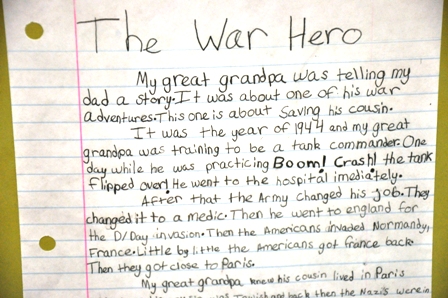 The War Hero
My great grandpa was telling my
dad a story. It was about one of his war
adventures. This one is about saving his cousin.
It was the year of 1944 and my great
grandpa was training to be a tank commander. One
day while he was practicing Boom! Crash! the tank
flipped over! He went to the hospital imediately.
After that the Army changed his job. They
changed it to a medic. Then he went to england for
the D/Day invasion. Then the Americans invaded Normandy,
France. Little by little the Americans got france back.
Then they got close to Paris.
My great grandpa knew his cousin lived in Paris
was Jewish and back then the Nazi's were in